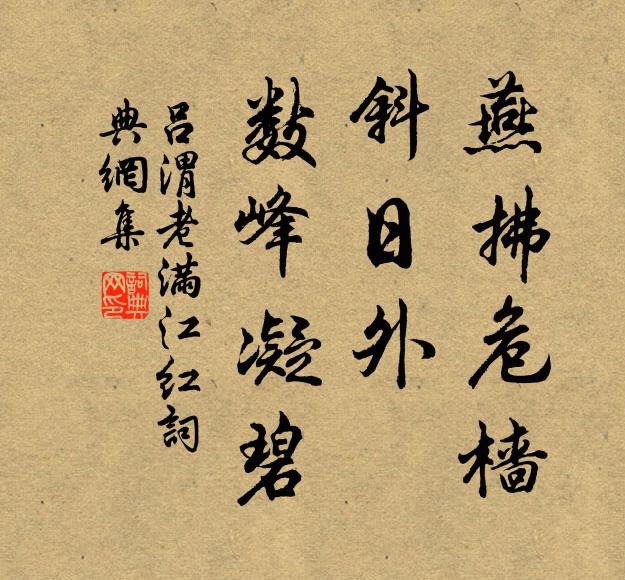 燕拂危檣
斜日外
数峰凝碧
吕渭老滿江红詞
典網集
詞典网印